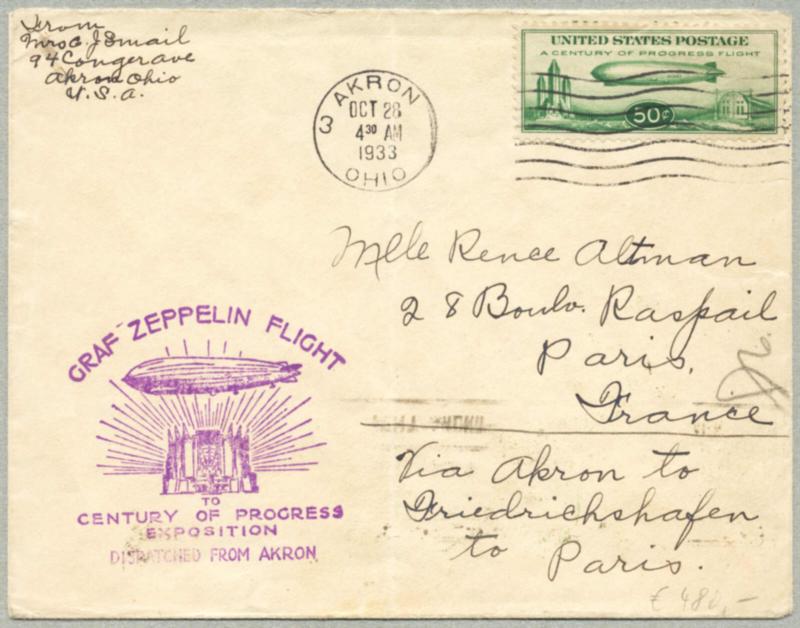 From
Mrs C. J Smail
94 Conger ave
Akron Ohio
U.S.A.
3 AKRON
OCT 28
4 30 AM
1933
OHIO
UNITED STATES POSTAGE
A CENTURY OF PROGRESS FLIGHT
50¢
Mlle Renee Altman
28 Boulv. Raspail
Paris,
France
Via Akron to
Friedrichshafen
to Paris.
GRAF ZEPPELIN FLIGHT
TO
CENTURY OF PROGRESS
EXPOSITION
DISPATCHED FROM AKRON
€ 480,-